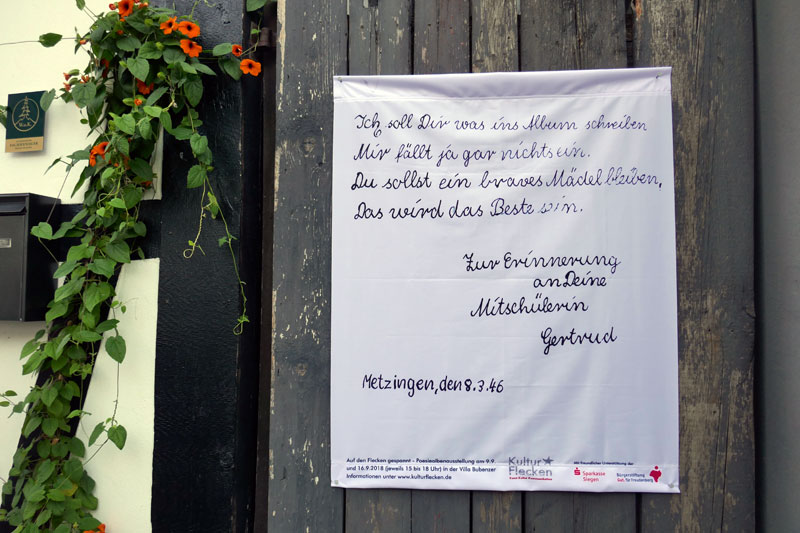 Ich soll Dir was ins Album schreiben
Mir fällt ja gar nichts ein.
Du sollst ein braves Mädel bleiben,
Das wird das Beste sein.
Zur Erinnerung
an Deine
Mitschülerin
Gertrud
Metzingen, den 8.3.46
Auf den Flecken gespannt – Poesiealbenausstellung am 9.9.
und 16.9.2018 (jeweils 15 bis 18 Uhr) in der Villa Bubenzer
Informationen unter www.kulturflecken.de
Kultur
Flecken
Mit freundlicher Unterstützung der
Sparkasse
Siegen
Bürgerstiftung